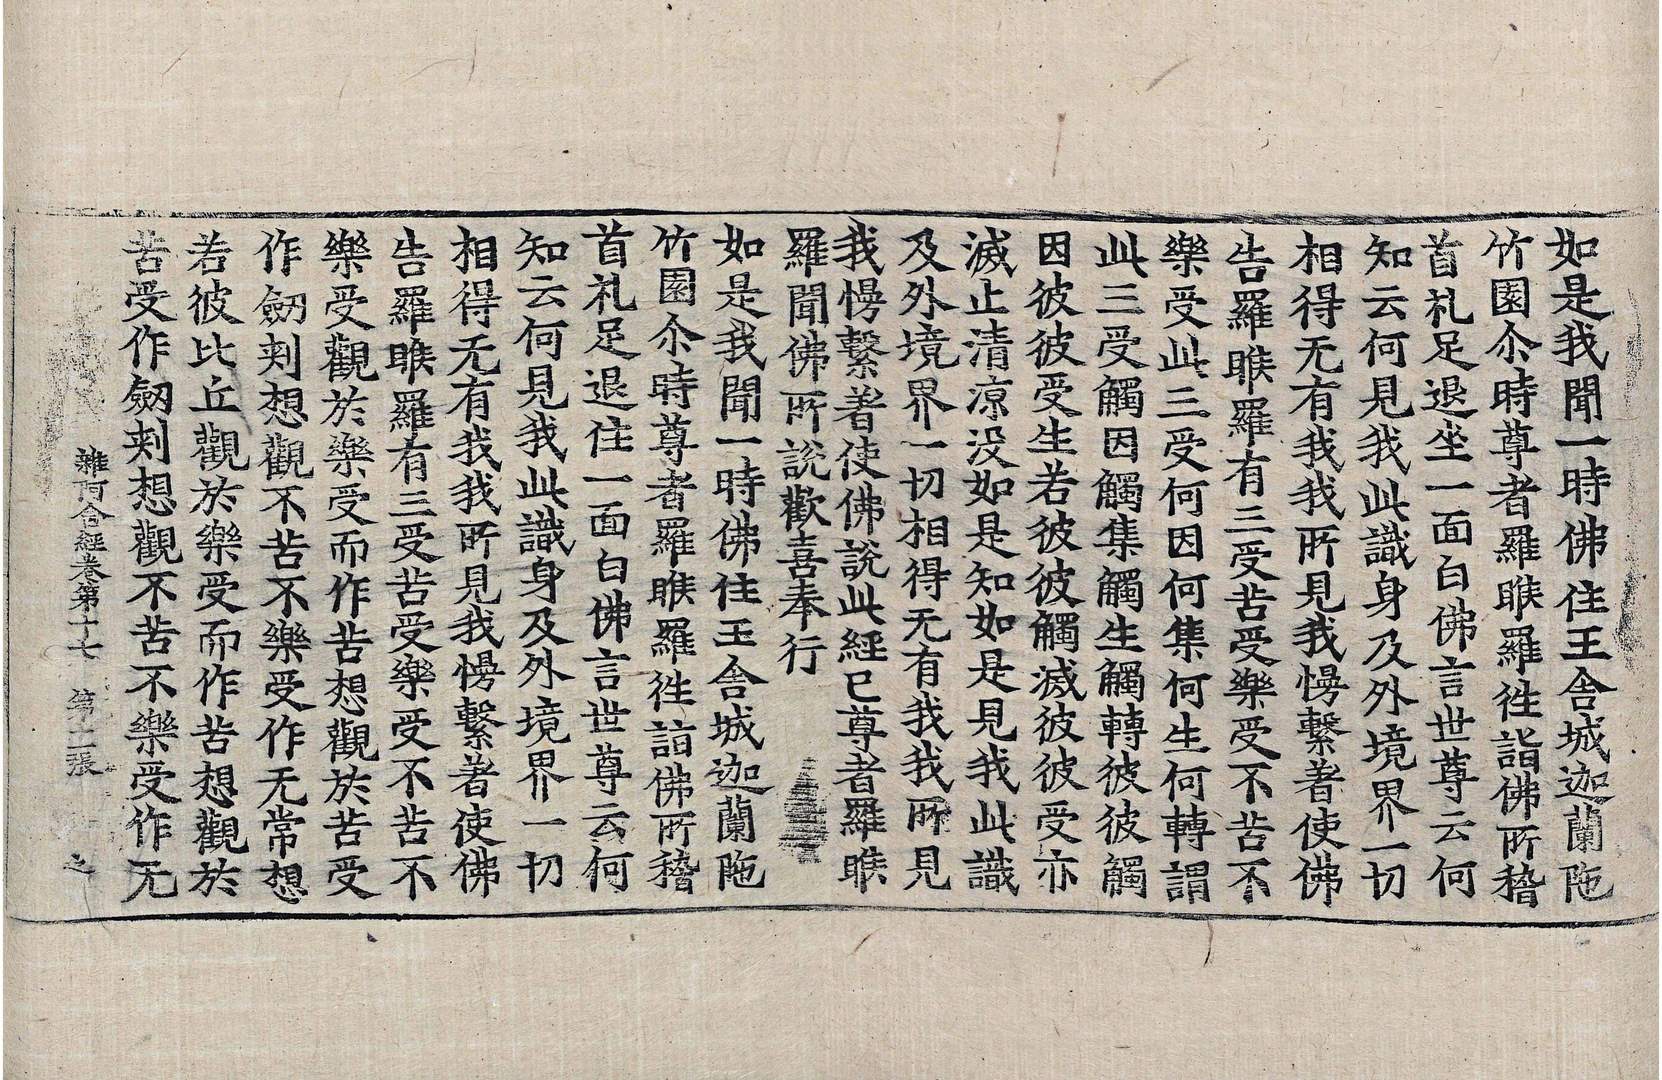 如是我聞一時佛住王舍城迦蘭陁
竹園尒時尊者羅睺羅徃詣佛所稽
首礼足退坐一面白佛言世尊云何
知云何見我此識身及外境界一切
相得无有我我所見我慢繫著使佛
告羅睺羅有三受苦受樂受不苦不
樂受此三受何因何集何生何轉謂
此三受觸因觸集觸生觸轉彼彼觸
因彼彼受生若彼彼觸滅彼彼受亦
滅止清涼没如是知如是見我此識
及外境界一切相得无有我我所見
我慢繫著使佛說此經已尊者羅睺
羅聞佛所說歡喜奉行
如是我聞一時佛住王舍城迦蘭陁
竹園尒時尊者羅睺羅徃詣佛所稽
首礼足退住一面白佛言世尊云何
知云何見我此識身及外境界一切
相得无有我我所見我慢繫著使佛
告羅睺羅有三受苦受樂受不苦不
樂受觀於樂受而作苦想觀於苦受
作劔刾想觀不苦不樂受作无常想
若彼比丘觀於樂受而作苦想觀於
苦受作劔刾想觀不苦不樂受作无
雜阿含經卷第十七 第 張